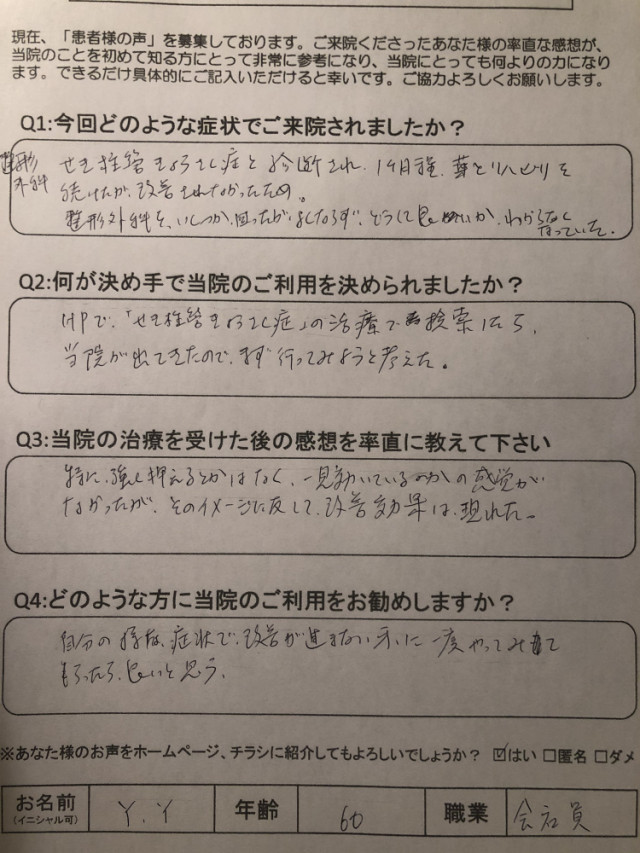 現在、「患者様の声」を募集しております。ご来院くださったあなた様の率直な感想が、
当院のことを初めて知る方にとって非常に参考になり、当院にとっても何よりの力になり
ます。できるだけ具体的にご記入いただけると幸いです。ご協力よろしくお願いします。
Q1:今回どのような症状でご来院されましたか？
整形外科
せき柱管きょうさく症と診断され、1ヶ月程、薬とリハビリを
続けたが、改善されなかったため。
整形外科を、いくつか回ったがよくならず、どうして良いか、わからなく
なっていた。
Q2:何が決め手で当院のご利用を決められましたか？
HPで、「せき柱管きょうさく症」の治療で検索したら、
当院が出てきたので、まず行ってみようと考えた。
Q3:当院の治療を受けた後の感想を率直に教えて下さい
特に、強く押えるとかはなく、一見効いているのかの感覚が
なかったが、そのイメージに反して、改善効果は、現れた。
Q4:どのような方に当院のご利用をお勧めしますか？
自分の様な、症状で、改善が進まない方に一度やってみて
もらったら、良いと思う。
※あなた様のお声をホームページ、チラシに紹介してもよろしいでしょうか？ ☑はい □匿名 □ダメ
お名前 Y.Y 年齢 60 職業 会社員
(イニシャル可)